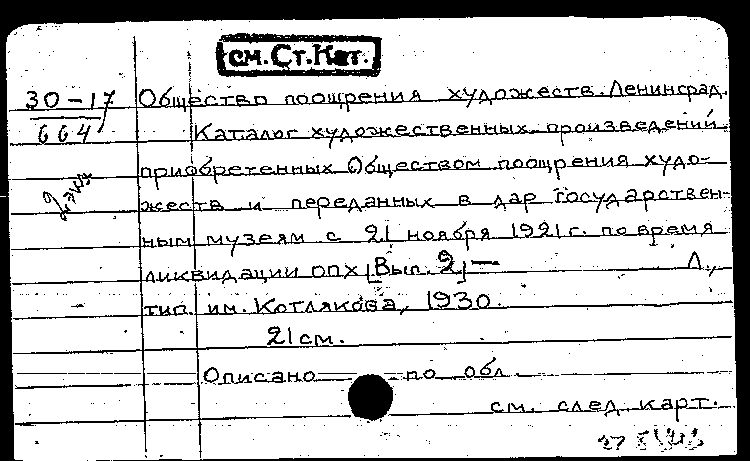 см. Ст. Кат.
30-17 Общество поощрения художеств. Ленинград.
664 Каталог художественных произведений,
приобретенных Обществом поощрения худо-
2 экз
жеств и переданных в дар государствен-
ным музеям с 21 ноября 1921 г. по время
ликвидации ОПХ [Вып. 2] — Л.,
тип. им. Котлякова, 1930.
21 см.
Описано по обл.
см. след. карт.